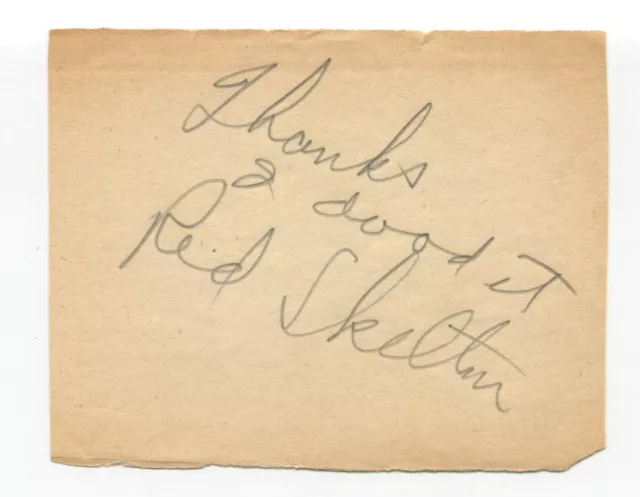 Thanks
I dood it
Red Skelton